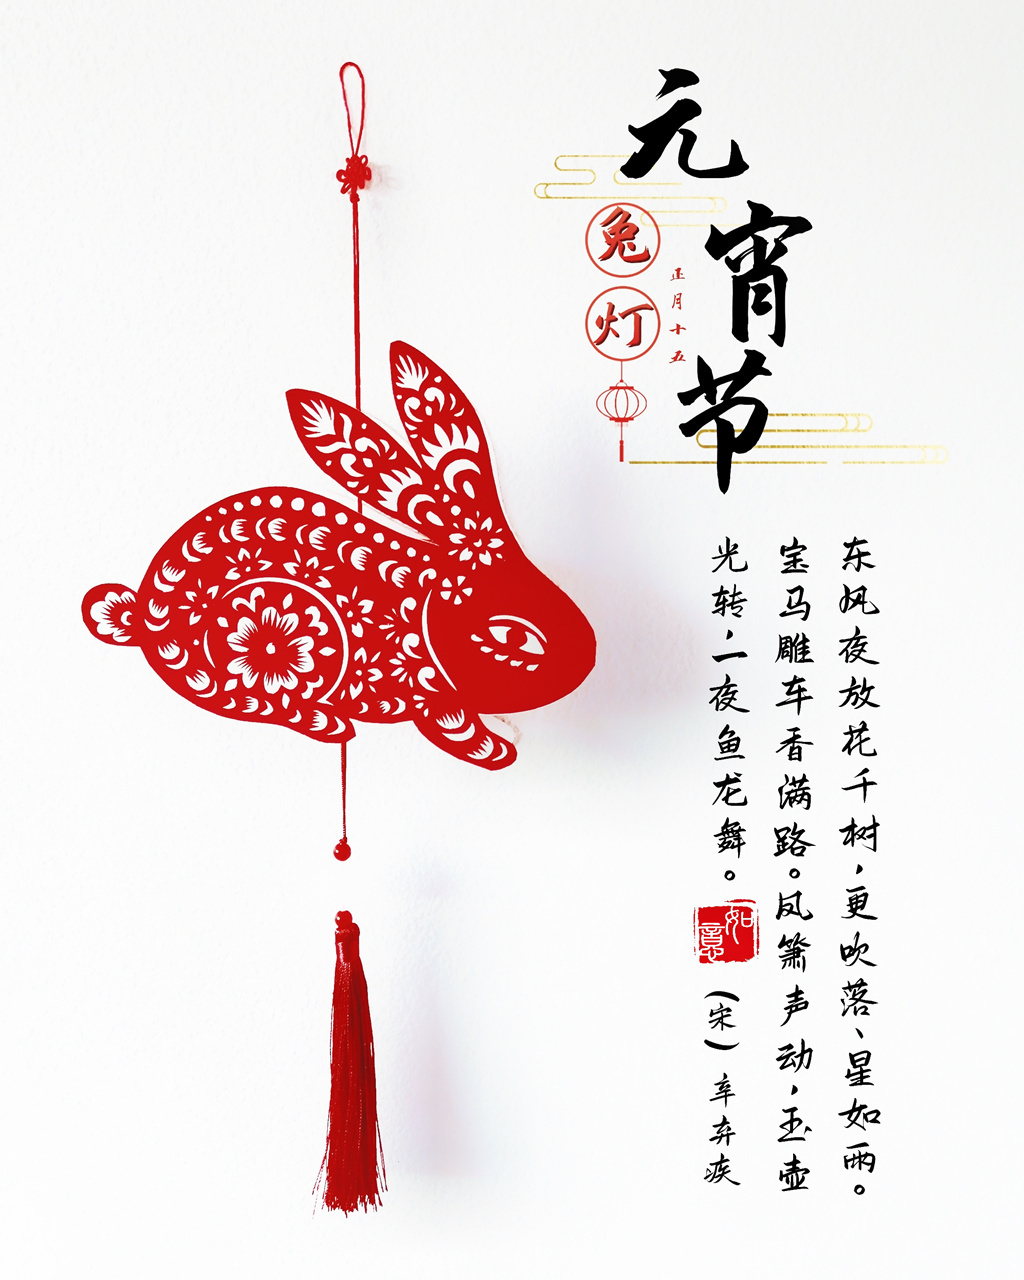 元宵节
兔灯
正月十五
东风夜放花千树，更吹落、星如雨。
宝马雕车香满路。凤箫声动，玉壶
光转，一夜鱼龙舞。
如意
（宋）辛弃疾